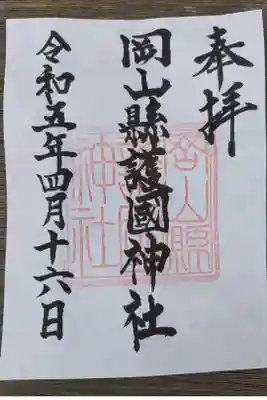 奉拝
岡山縣護國神社
令和五年四月十六日